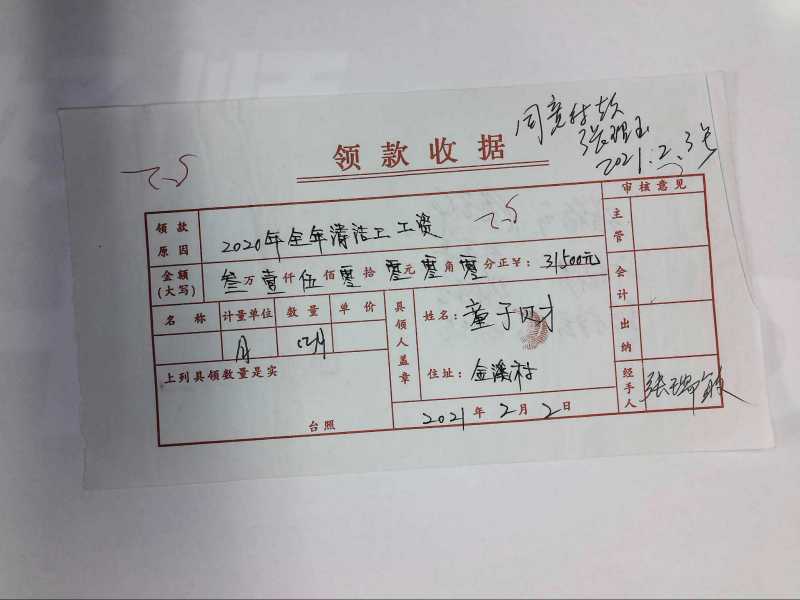 同意付款
2021.2.3号
领款收据
审核意见
领款原因
2020年全年清洁工工资
主管
金额(大写)
叁万壹仟伍佰零拾零元零角零分正¥:31500元
会计
名称 计量单位 数量 单价
月 12月
具领人盖章
姓名:童子贝才
住址:金溪村
出纳
上列具领数量是实
台照
2021年2月2日
经手人